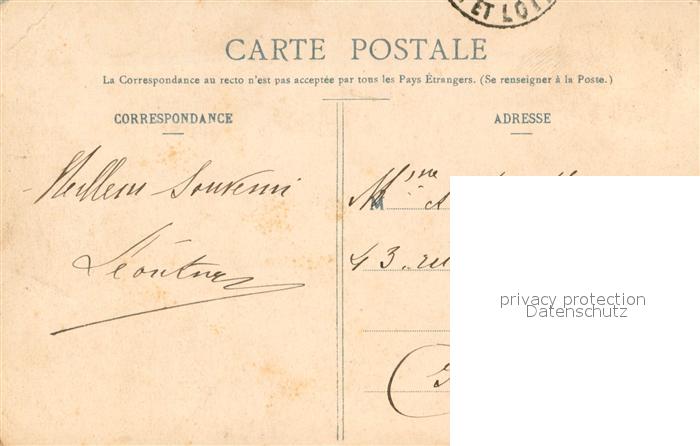 ET LOI
CARTE POSTALE
La Correspondance au recto n'est pas acceptée par tous les Pays Étrangers. (Se renseigner à la Poste.)
CORRESPONDANCE
ADRESSE
Meilleur Souvenir
M
43, ru
privacy protection
Datenschutz